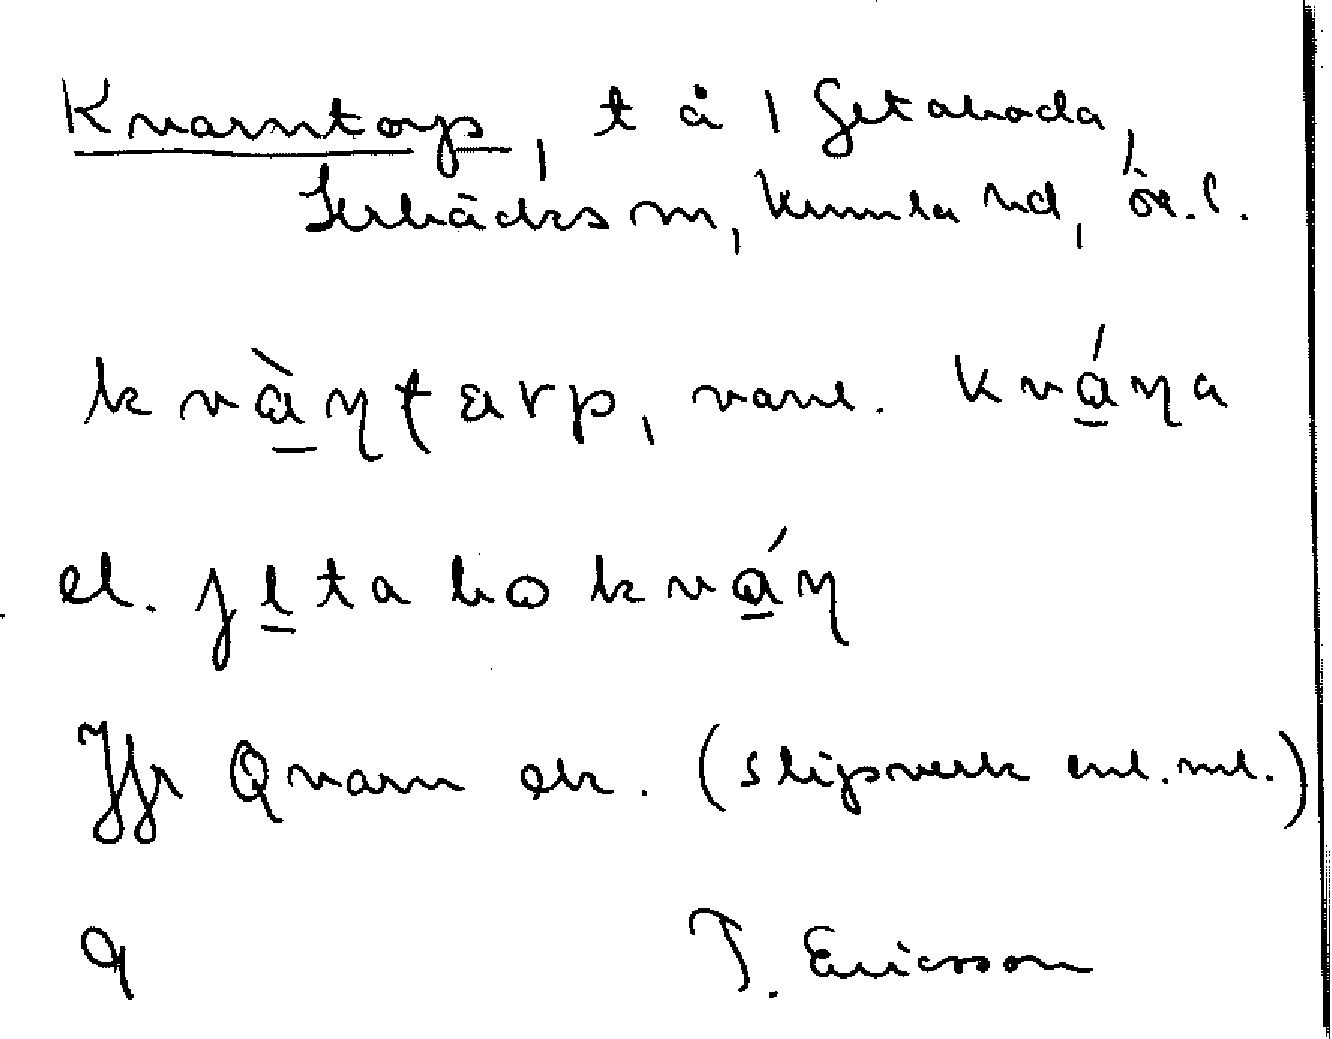 Kvarntorp, t å 1 Getaboda,
Lerbäcks sn, Kumla hd, Ör. l.
kvàɳʈarp, vanl. kváɳa
el. jetabokváɳ
Jfr Qvarn ek. (slipsverk enl. ml.)
9 T. Ericsson